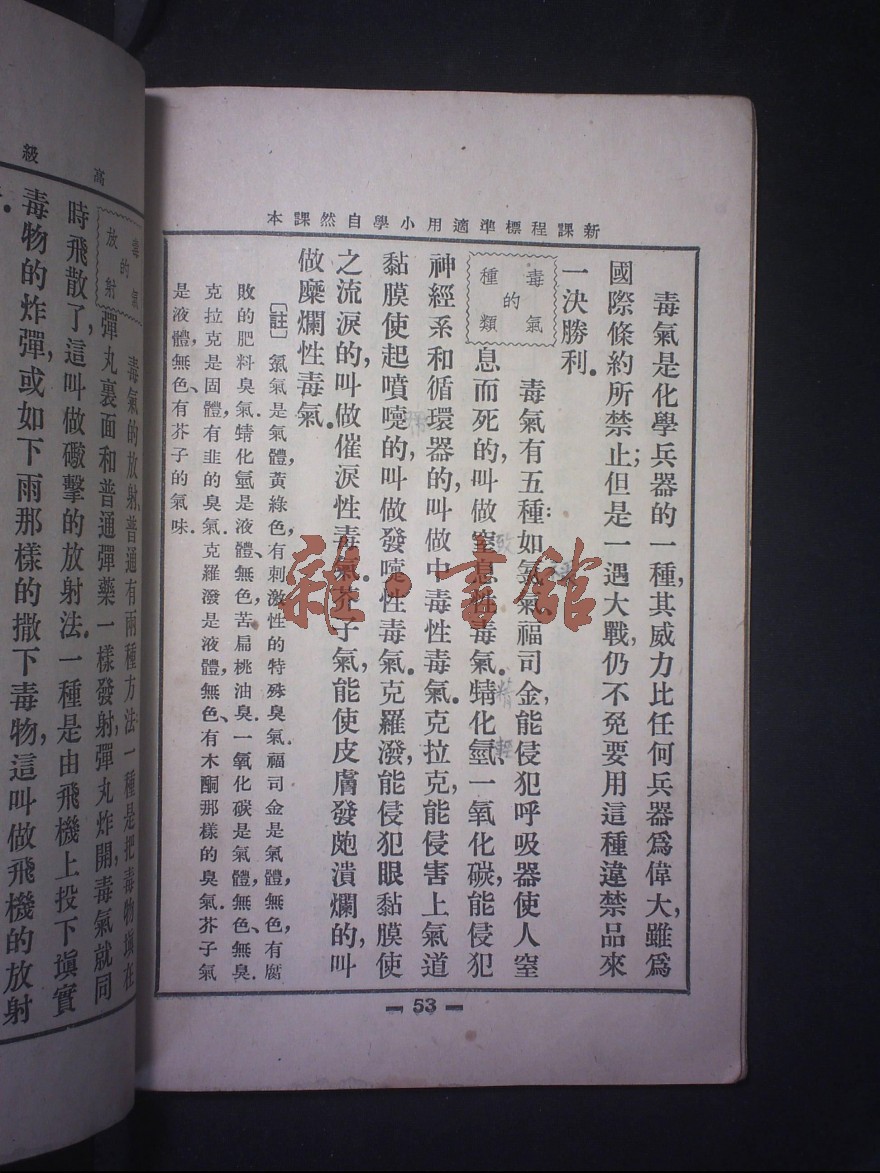 新課程標準適用小學自然課本
毒氣是化學兵器的一種，其威力比任何兵器爲偉大，雖爲
國際條約所禁止；但是一遇大戰，仍不免要用這種違禁品來
一決勝利。
毒氣
的
種類
毒氣有五種：如氯氣、福司金，能侵犯呼吸器使人窒
息而死的，叫做窒息性毒氣。蜻化氫、一氧化碳，能侵犯
神經系和循環器的，叫做中毒性毒氣。克拉克，能侵害上氣道
黏膜使起噴嚏的，叫做發嚏性毒氣。克羅潑，能侵犯眼黏膜使
之流淚的，叫做催淚性毒氣。芥子氣，能使皮膚發皰潰爛的，叫
做糜爛性毒氣。
〔註〕氯氣是氣體，黃綠色，有刺激性的特殊臭氣。福司金是氣體，無色，有腐
敗的肥料臭氣。蜻化氫是液體、無色，苦扁桃油臭。一氧化碳是氣體，無色、無臭。
克拉克是固體，有韭的臭氣。克羅潑是液體，無色、有木酮那樣的臭氣。芥子氣
是液體，無色、有芥子的氣味。
53
高級
毒氣
的
放射
毒氣的放射，普通有兩種方法：一種是把毒物塡在
彈丸裏面和普通彈藥一樣發射，彈丸炸開，毒氣就同
時飛散了，這叫做礮擊的放射法。一種是由飛機上投下塡實
毒物的炸彈，或如下雨那樣的撒下毒物，這叫做飛機的放射
雜·書館